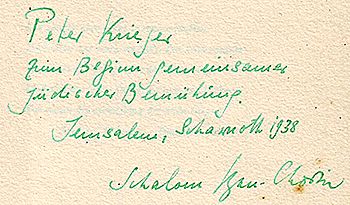 Peter Krieger
zum Beginn gemeinsamer
jüdischer Bemühung.
Jerusalem, Schawuoth 1938
Schalom Ben-Chorin